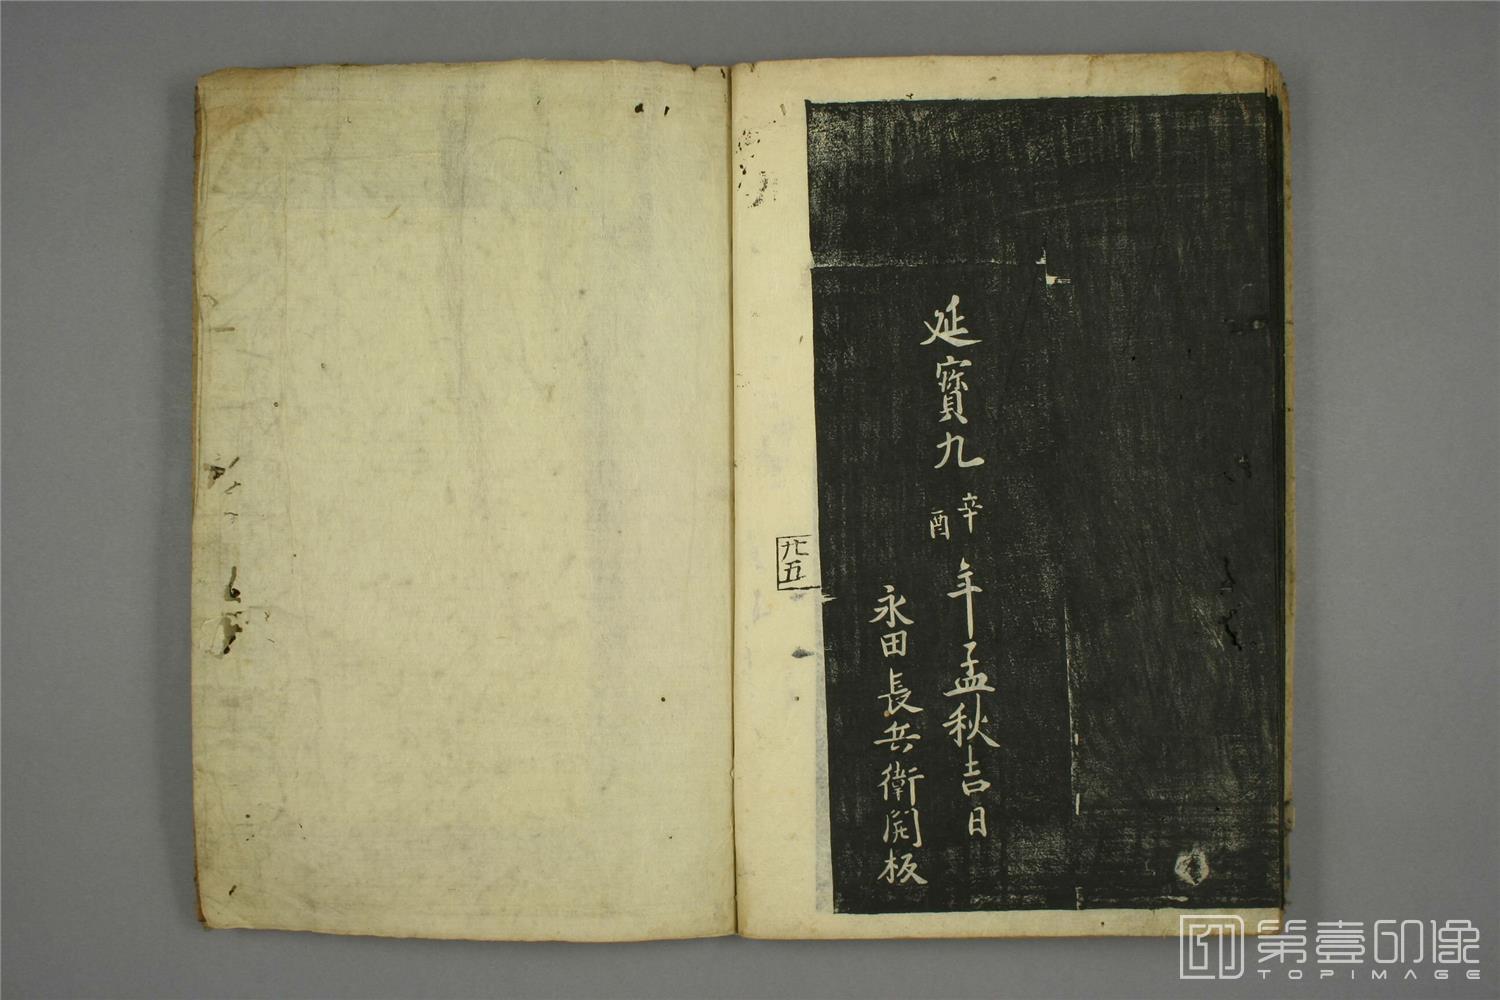 延寳九辛酉年孟秋吉日
永田長兵衛開板
廿五
第壹印像
TOPIMAGE